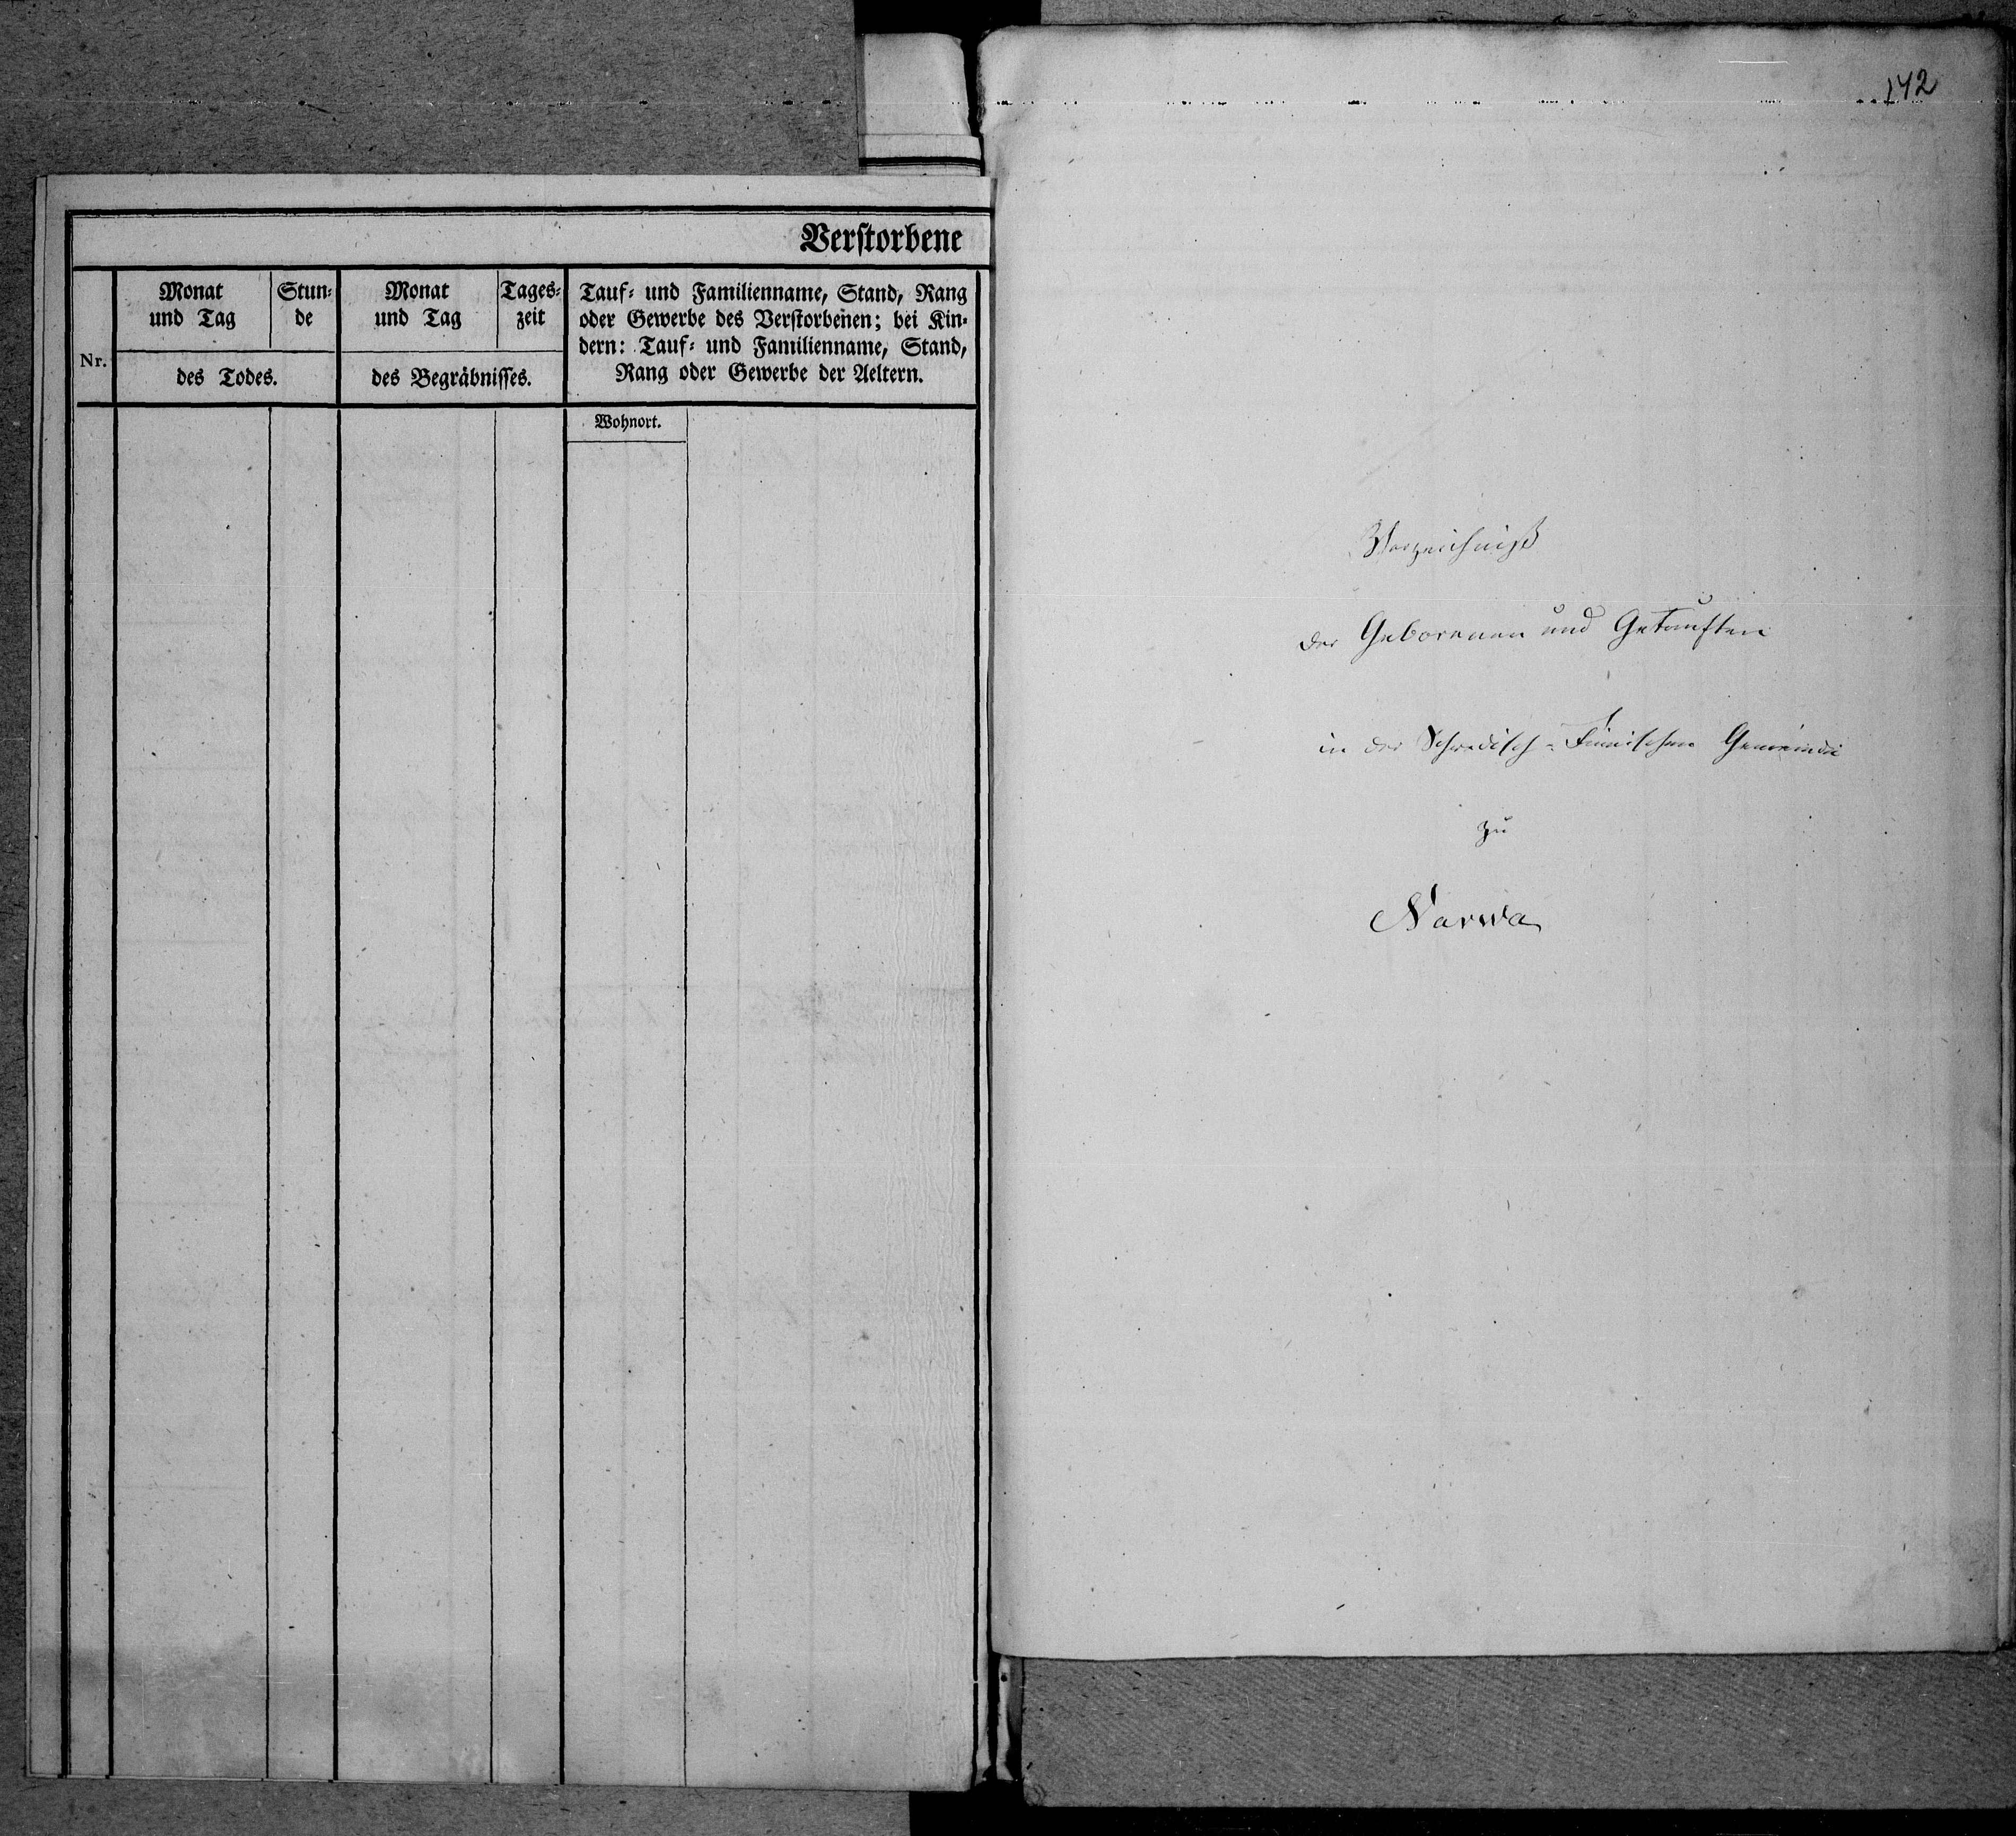 Verstorbene
Nr.
Monat
und Tag
Stun-
de
des Todes.
Monat
und Tag
Tages-
zeit
des Begräbnisses.
Tauf- und Familienname, Stand, Rang
oder Gewerbe des Verstorbenen; bei Kin-
dern: Tauf- und Familienname, Stand,
Rang oder Gewerbe der Aeltern.
Wohnort.
142
Verzeichniß
der Geborenen und Getauften
in der Schwedisch-Finnischen Gemeinde
zu
Narwa